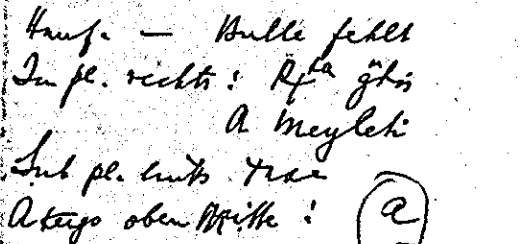 Hanf. — Bulle fehlt
In pl. rechts: Rta
A Meyleti
Sub pl. links
A tergo oben Mitte: a